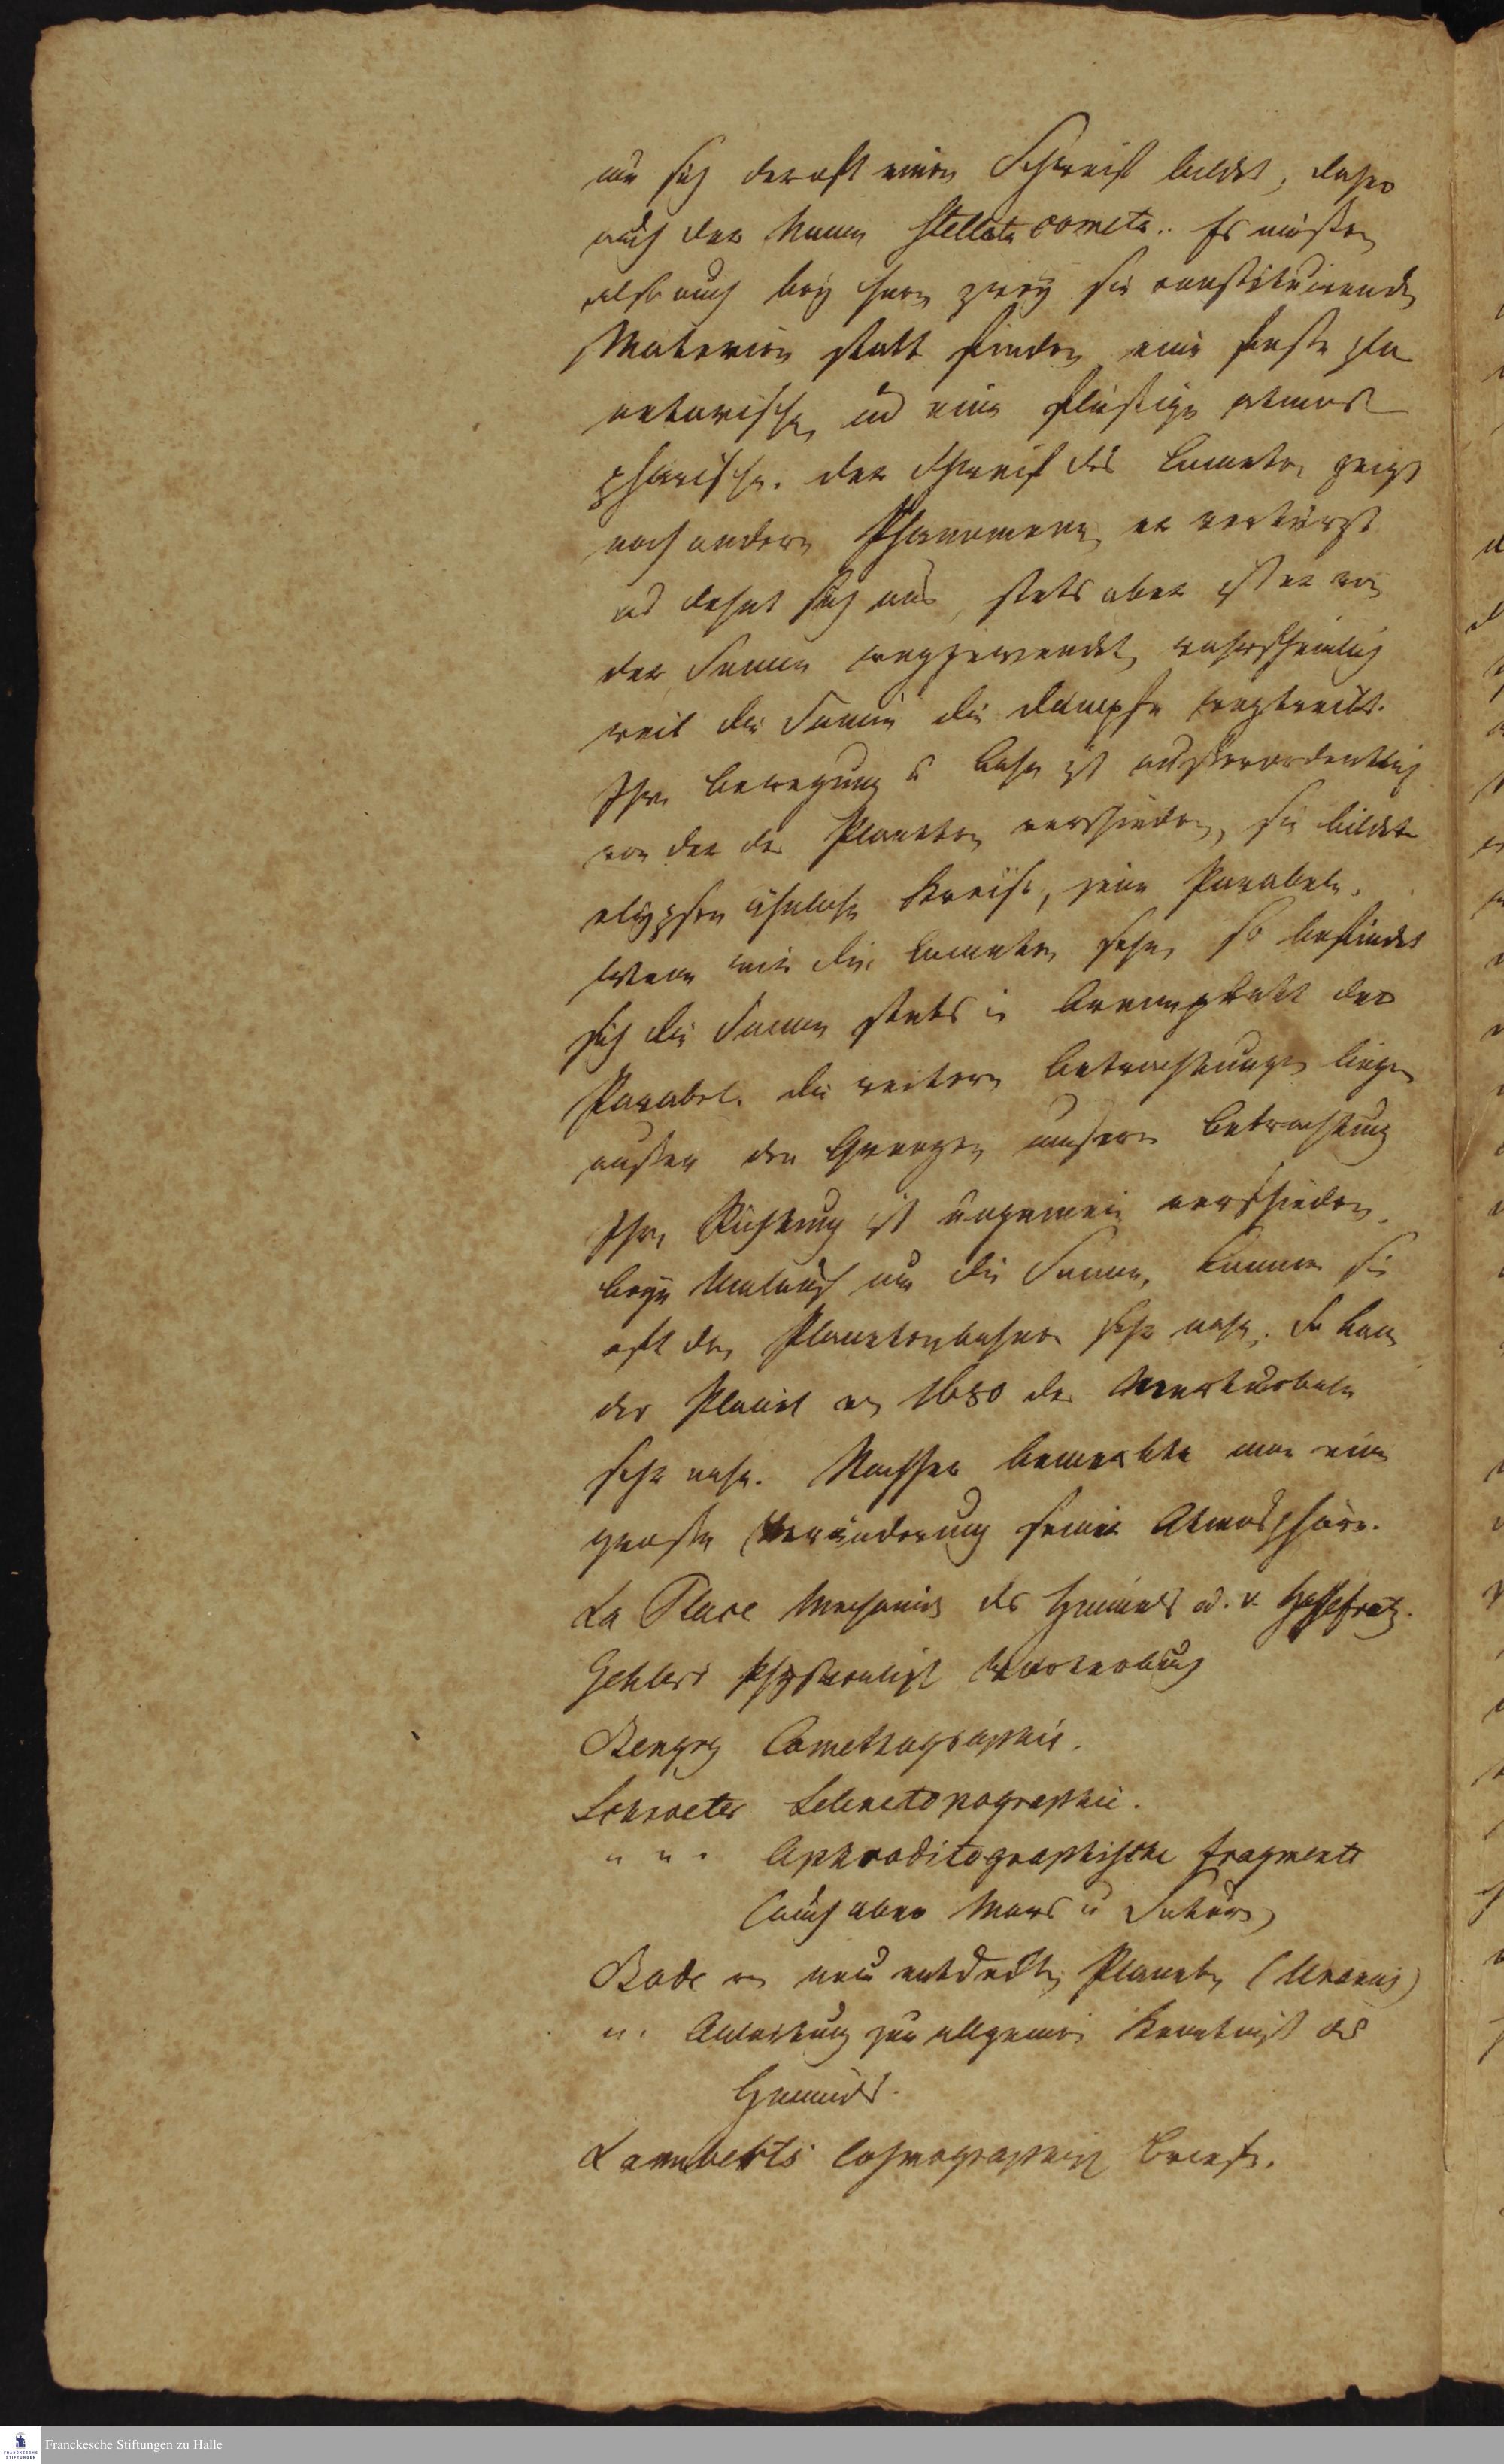 um sich der oft einen Schweif bildet, daher
auch der Name stellata cometa. Es müßen
also auch bey ihnen zwey sie constituirende
Materien statt finden eine feste pla
netarische, und eine flüßige atmos
phärische. der Schweif des Cometen zeigt
noch andere Phänomene, er verkürzt
und dehnt sich aus, stets aber ist er von
der Sonne weggewendet, wahrscheinlich
weil die Sonne die Dämpfe wegtreibt.
Ihre Bewegung u Bahn ist außerordentlich
von der der Planeten verschieden, sie bilden
elypsen ähnliche Kreise, jene Parabeln.
Wenn wir die Cometen sehen, so befindet
sich die Sonne stets in Brennpunkt der
Parabel. die weitern Betrachtungen liegen
außer den Grenzen unserer Betrachtung
Ihre Richtung ist ungemein verschieden.
beym Umlauf um die Sonne, kommen sie
oft den Planetenbahnen sehr nahe. So kam
der Planet von 1680 der Merkursbahn
sehr nahe. Nachher bemerkte man eine
große Veränderung seiner Atmosphäre.
La Place Mechanik des Himmels
Gehlers physikalisch Wörterbuch
Cometographie.
Schroeter Selenetopographie.
" " " Aphroditographische Fragmente
(auch über Mars u Saturn)
Bode von neu entdeckten Planeten (Uranus)
" " Anleitung zur allgemein Kenntniß des
Himmels.
Lamberts Cosmographisch Briefe.